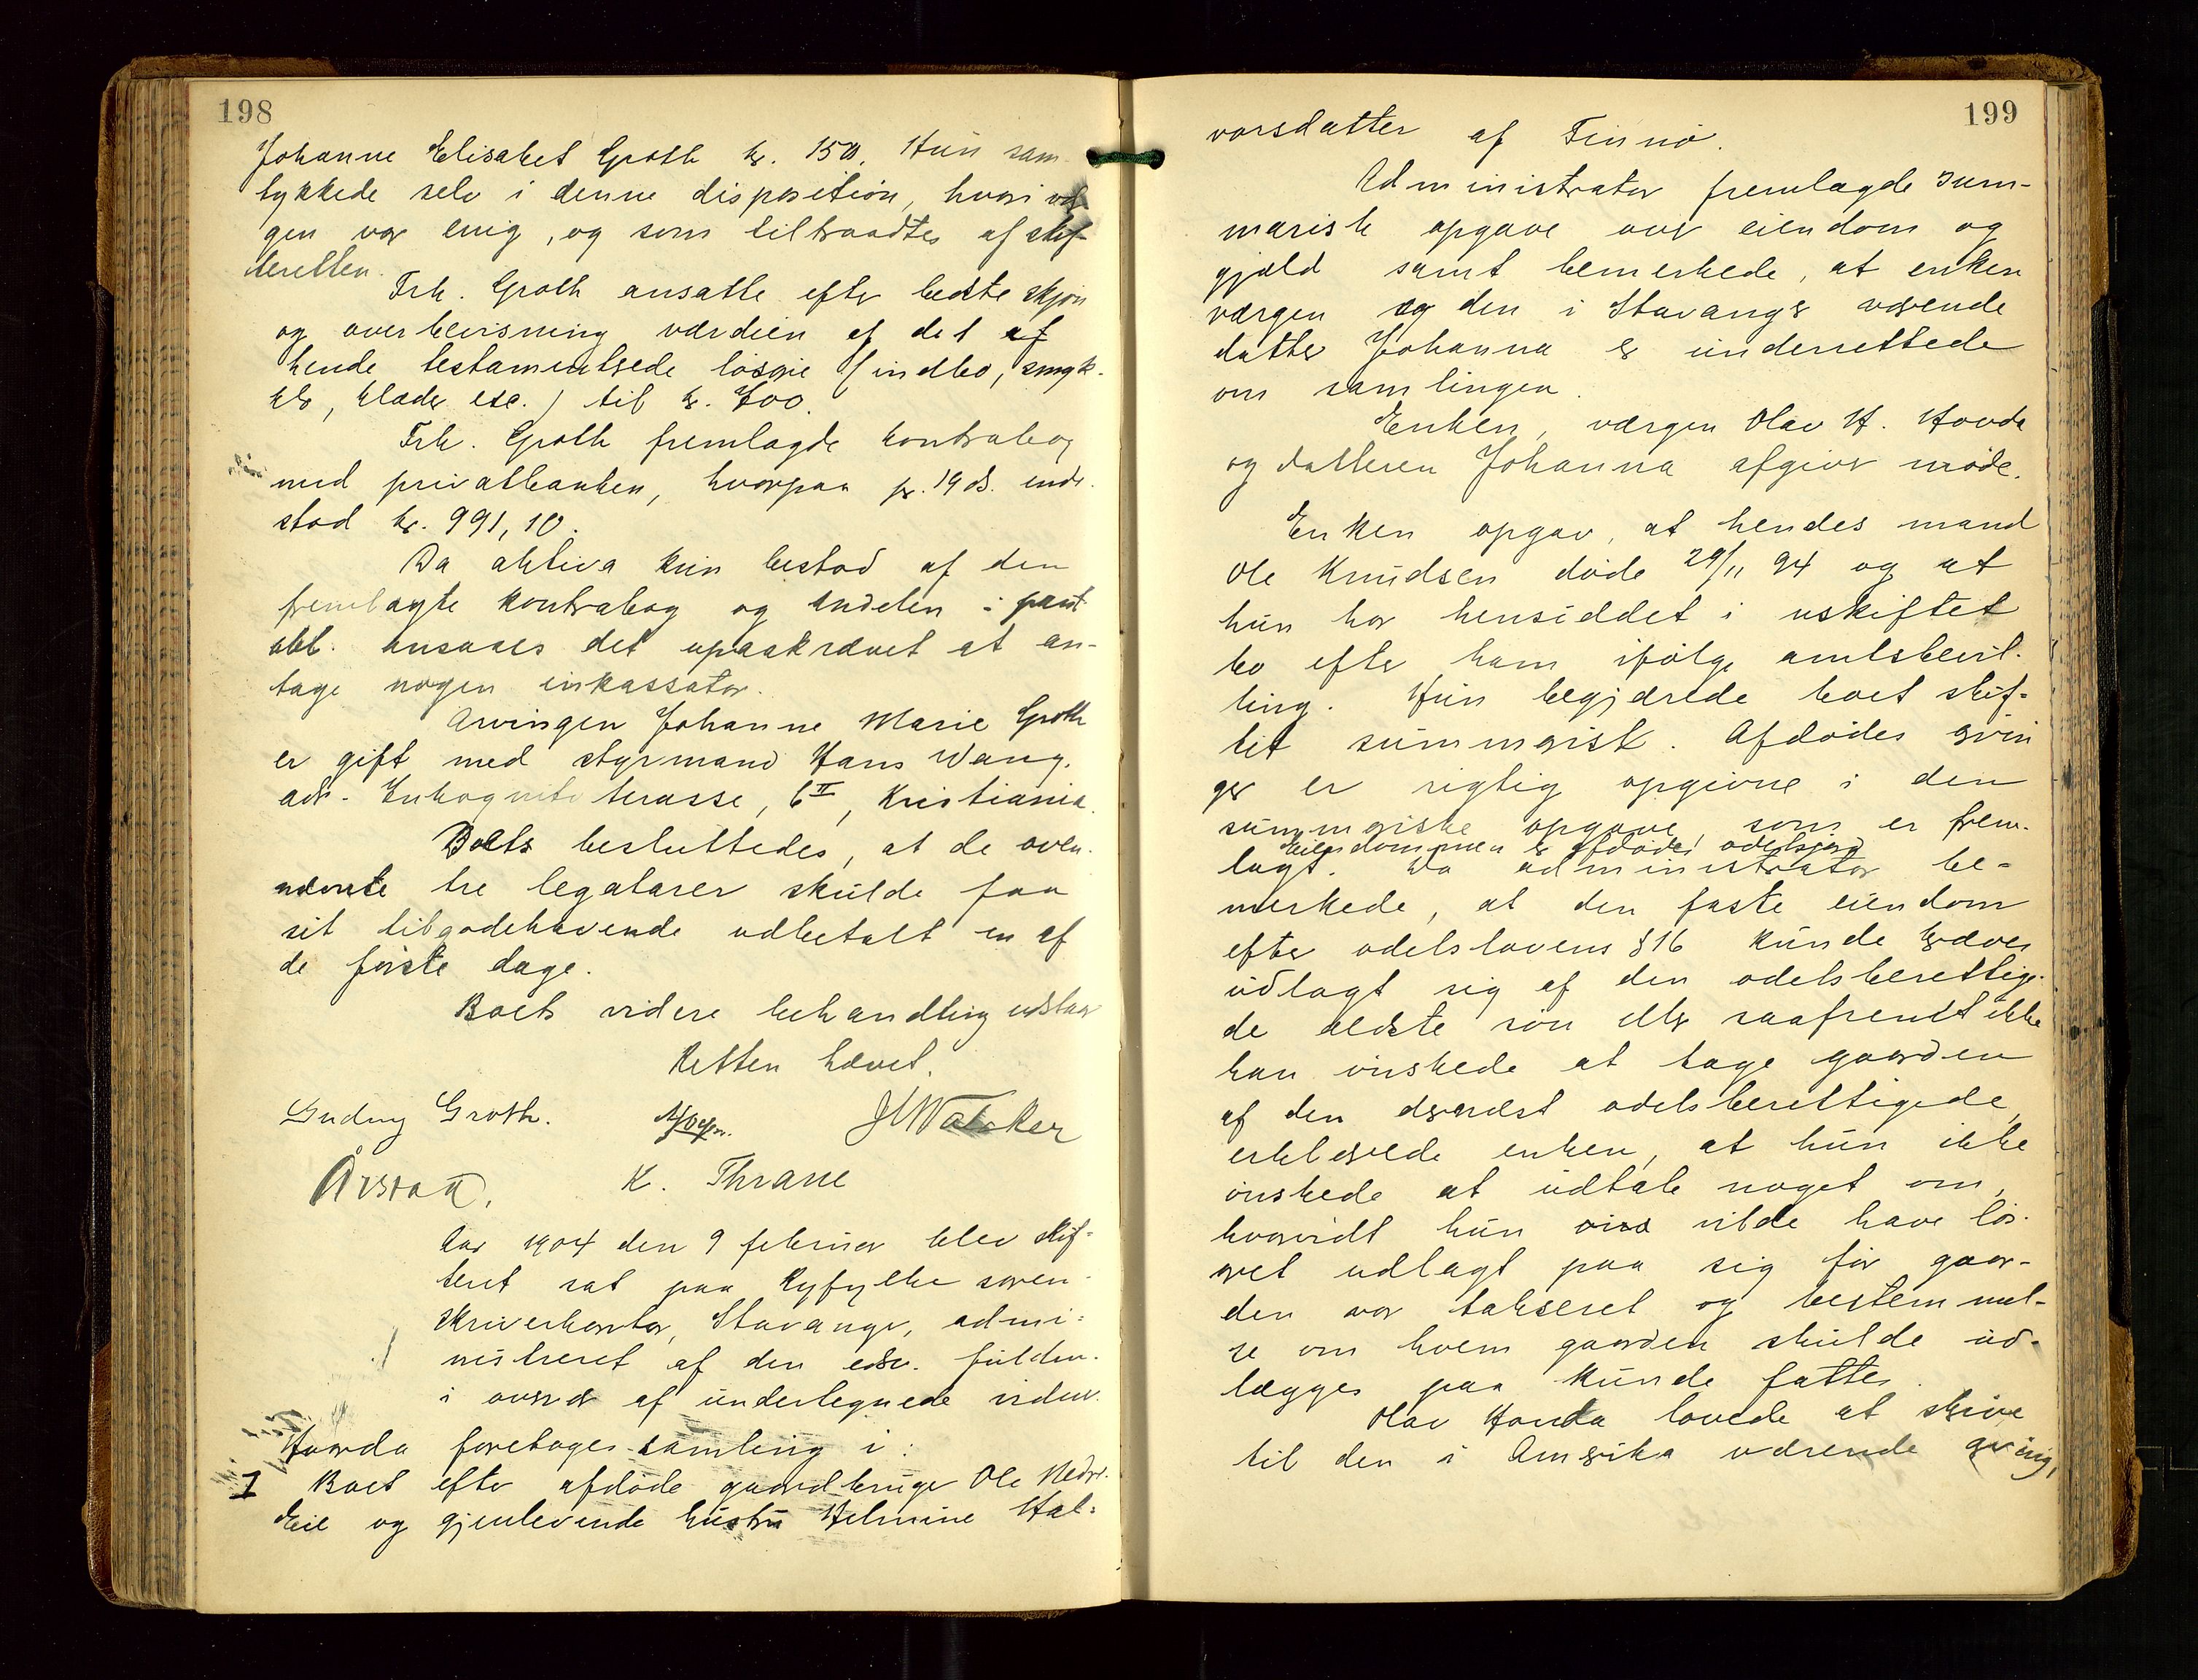 198
Johanne Elisabet Groth kr. 150. Hun sam-
tykkede selv i denne disposition, hvori vær
gen var enig, og som tiltraadtes af skif
teretten.
Frk. Groth ansatte efter bedste skjøn
og overbevisning værdien af det af
hende testamentsede løsøre (indbo, smyk-
ker, klæder etc.) til kr. 600.
Frk. Groth fremlagde kontrabog
med privatbanken, hvorpaa pr. 19 ds. inde-
stod kr. 991,10.
Da aktiva kun bestod af den
fremlagte kontrabog og andelen i pant
obl. ansaaes det upaakrævet at an-
tage nogen inkassator.
Arvingen Johanne Marie Groth
er gift med styrmand Hans Wang.
adr. Inkognito terasse, 6 II, Kristiania.
Boets besluttedes, at de oven-
nævnte tre legatarer skulde faa
sit tilgodehavende udbetalt en af
de første dage.
Boets videre behandling udstaar
Retten hævet.
Gudny Groth.
K. Thrane
Aar 1904 den 9 februar blev skif-
teret sat paa Ryfylke soren-
skriverkontor, Stavanger, admi-
nistreret af den edsv. fuldm.
i overvær af undertegnede vidner.
Hvorda foretages samling i:
1 Boet efter afdøde gaardbruger Ole Nedre-
Eie og gjenlevende hustru Helmine Hal-
199
vorsdatter af Finnø.
Administrator fremlagde sum-
marisk opgave over eiendom og
gjæld samt bemerkede, at enken
værgen og den i Stavanger værende
datter Johanna er underrettede
om samlingen.
Enken, værgen Olav H. Hovda
og datteren Johanna afgiver møde.
Enken opgav, at hendes mand
Ole Knudsen døde 29/11 94 og at
hun har hensiddet i uskiftet
bo efter ham ifølge amtsbevil-
ling. Hun begjærede boet skif-
tet summarisk. Afdødes arvin
ger er rigtig opgivne i den
summariske opgave, som er frem-
Eiendommen er afdødes odelsjord
lagt. Da administrator be-
merkede, at den faste eiendom
efter odelslovens § 16 kunde kræves
udlagt sig af den odelsberettige-
de ældste søn eller saafremt ikke
han ønskede at tage gaarden
af den dernæst odelsberettigede,
erklærede enken, at hun ikke
ønskede at udtale noget om,
hvorvidt hun vilde have løs-
øret udlagt paa sig før gaar-
den var takseret og bestemmel-
se om hvem gaarden skulde ud-
lægges paa kunde fattes.
Olav Hovda lovede at skrive
til den i Amerika værende arving,